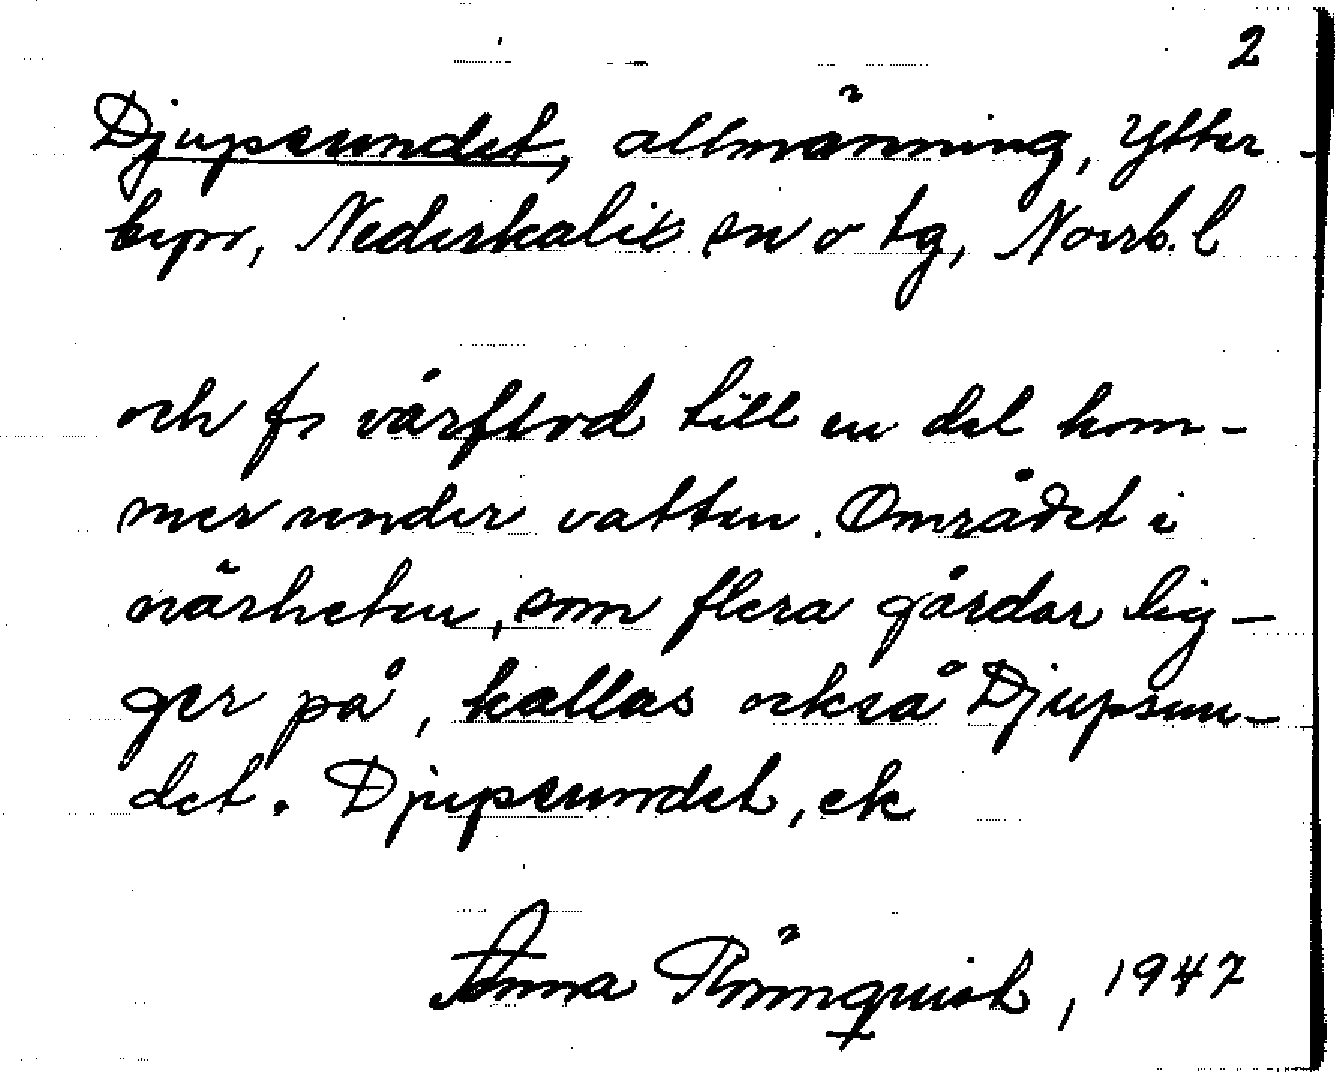 2
Djupsundet, allmänning, Ytter-
byn, Nederkalix sn o tg, Norrb. l
och fr vårflod till en del kom-
mer under vatten. Området i
närheten, som flera gårdar lig-
ger på, kallas också Djupsun-
det. Djupsundet, ek
Anna Rönnquist, 1947